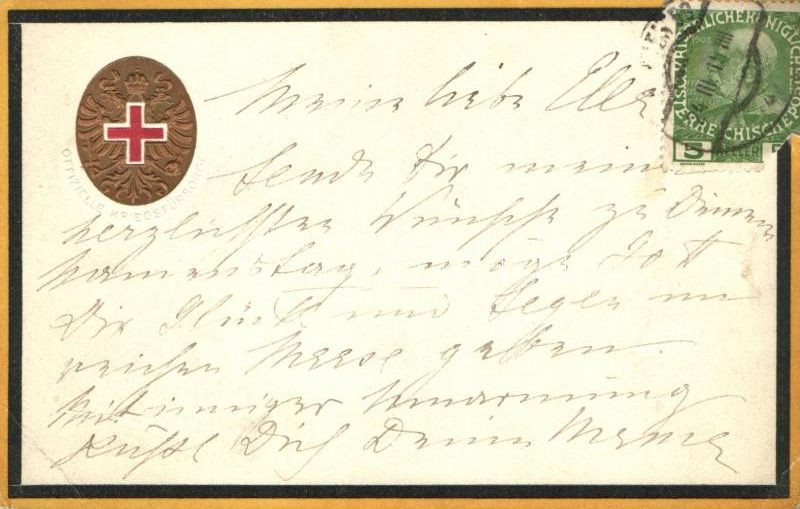 Meine liebe Ella
sende Dir meine
herzlichsten Wünsche zu Deinem
Namenstag, möge Gott
Dir Glück und Segen im
reichen Masse geben.
Mit inniger Umarmung
küsst Dich Deine Mama
OFFIZIELLE KRIEGSFÜRSORGE
KAISERLICHEKÖNIGLICHE
ÖSTERREICHISCHEPOST
5